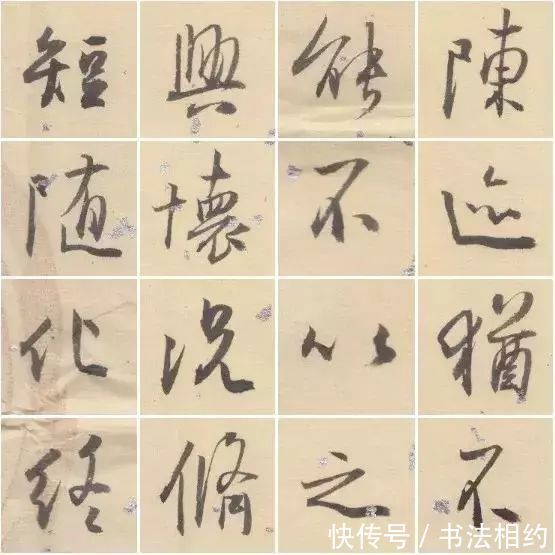 陳迹猶不
能不以之
興懷況脩
短随化終
快传号 / 书法相约